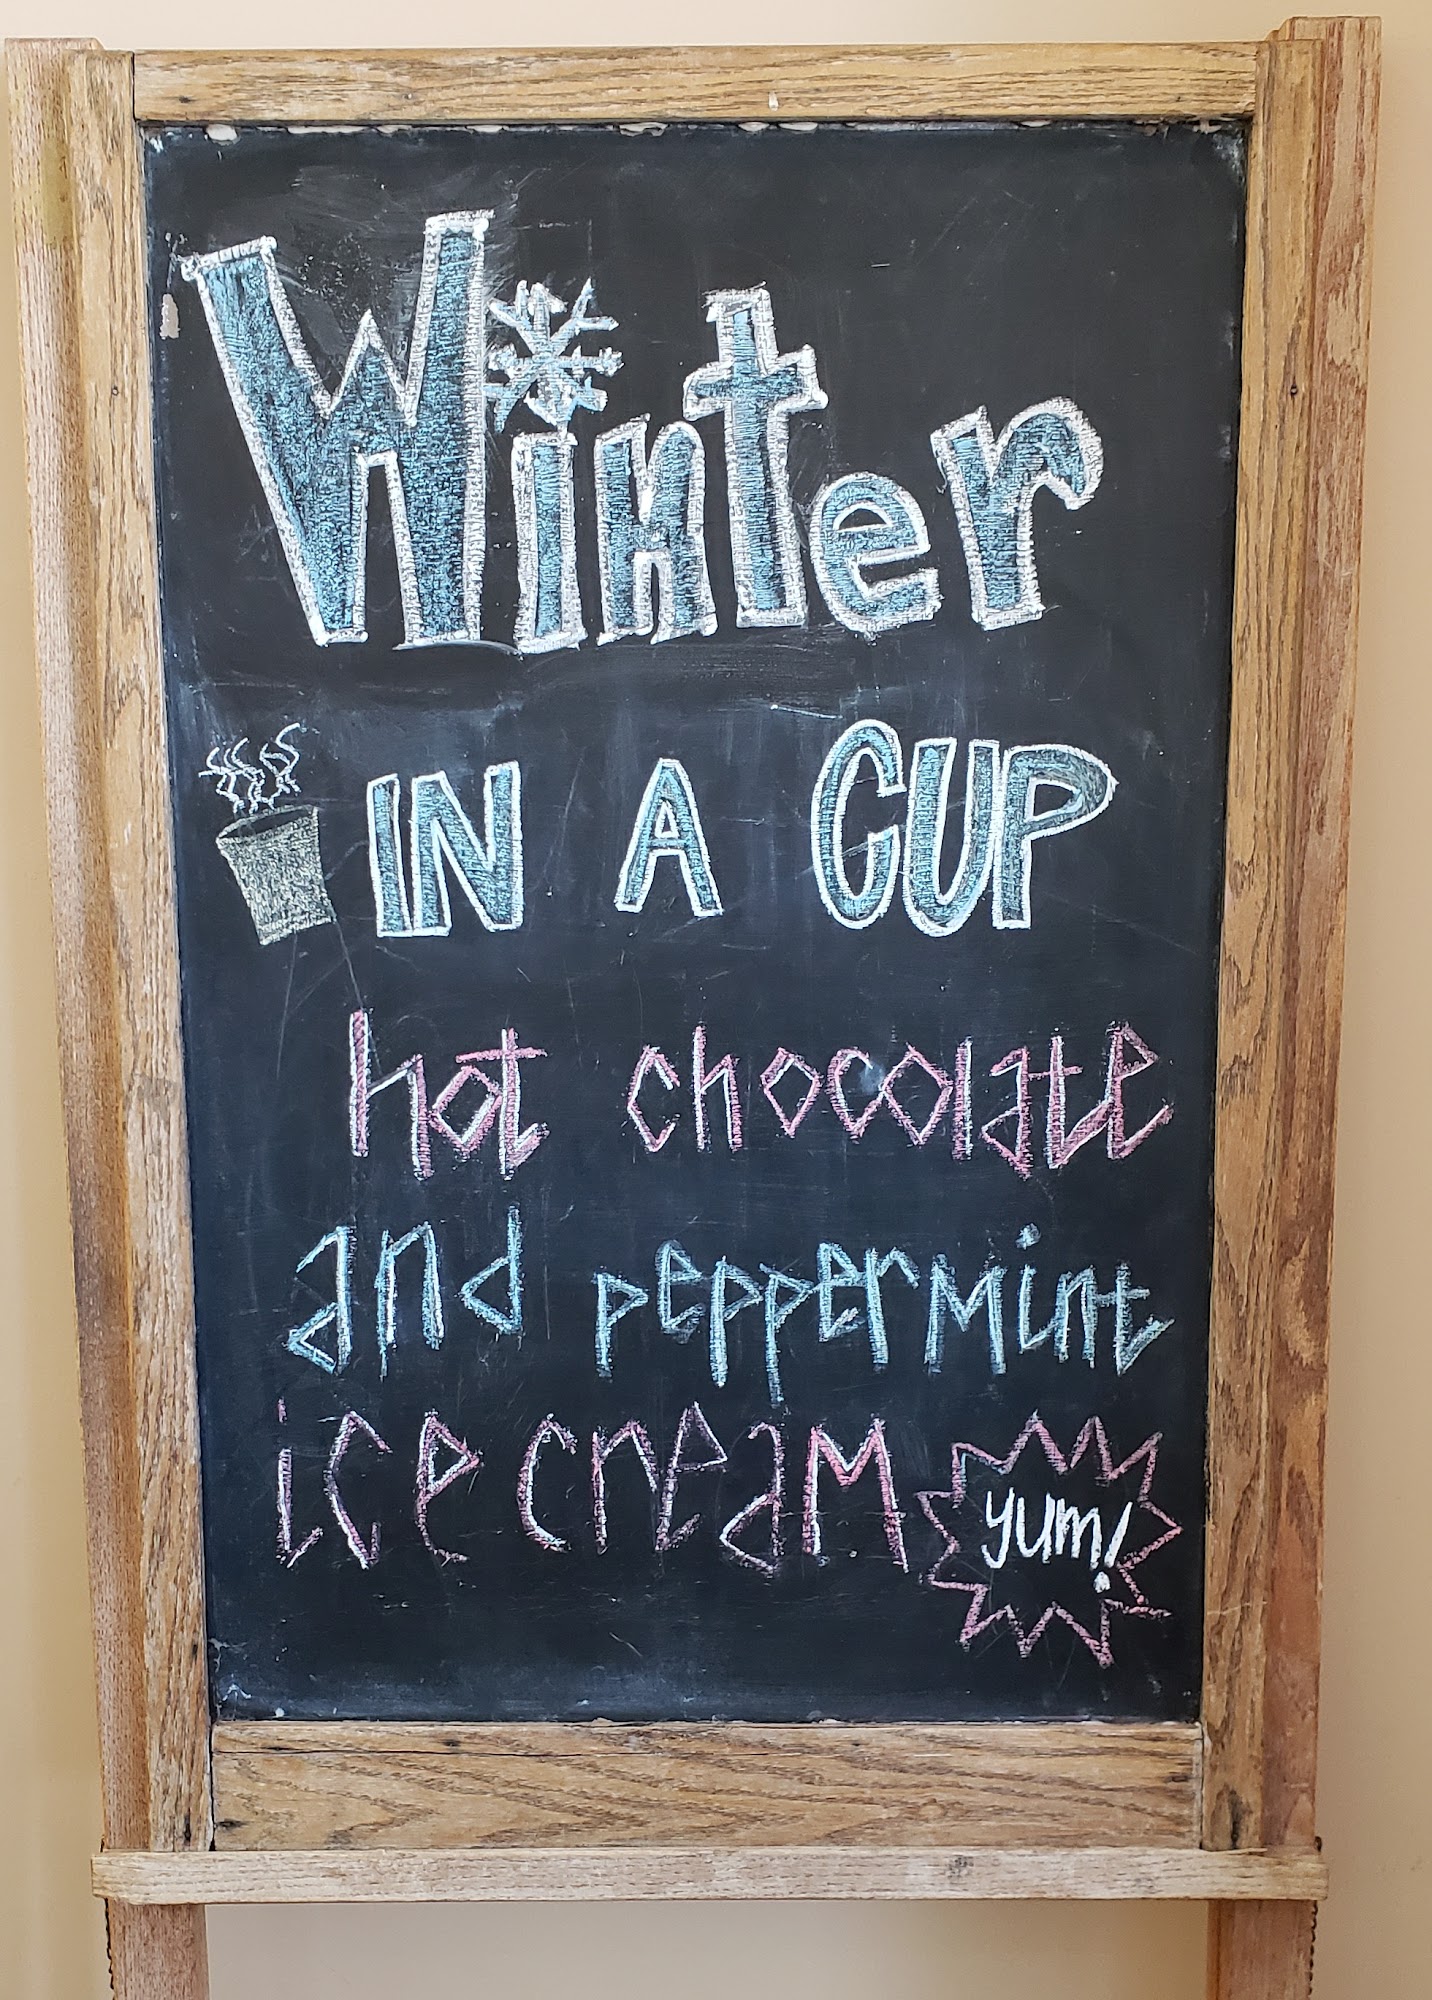 Winter
IN A CUP
hot chocolate
and peppermint
ice cream
yum!